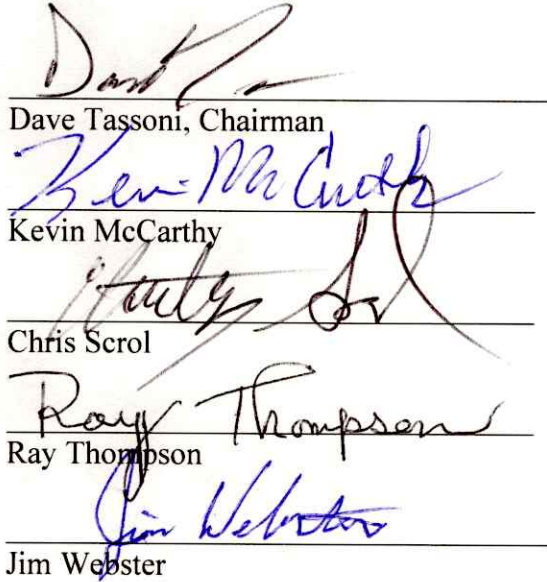 Dave Tassoni, Chairman
Kevin McCarthy
Kevin McCarthy
Chris Scrol
Ray Thompson
Ray Thompson
Jim Webster
Jim Webster